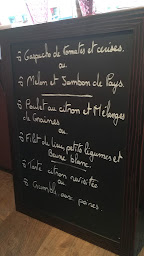 Gaspacho de tomates et cerises.
ou.
Melon et Jambon de Pays.
Poulet au citron et Mélanges
de Graines
ou.
Filet de lieu, petits légumes et
Beurre blanc.
Tarte citron revisitée
ou
Crumble aux poires.